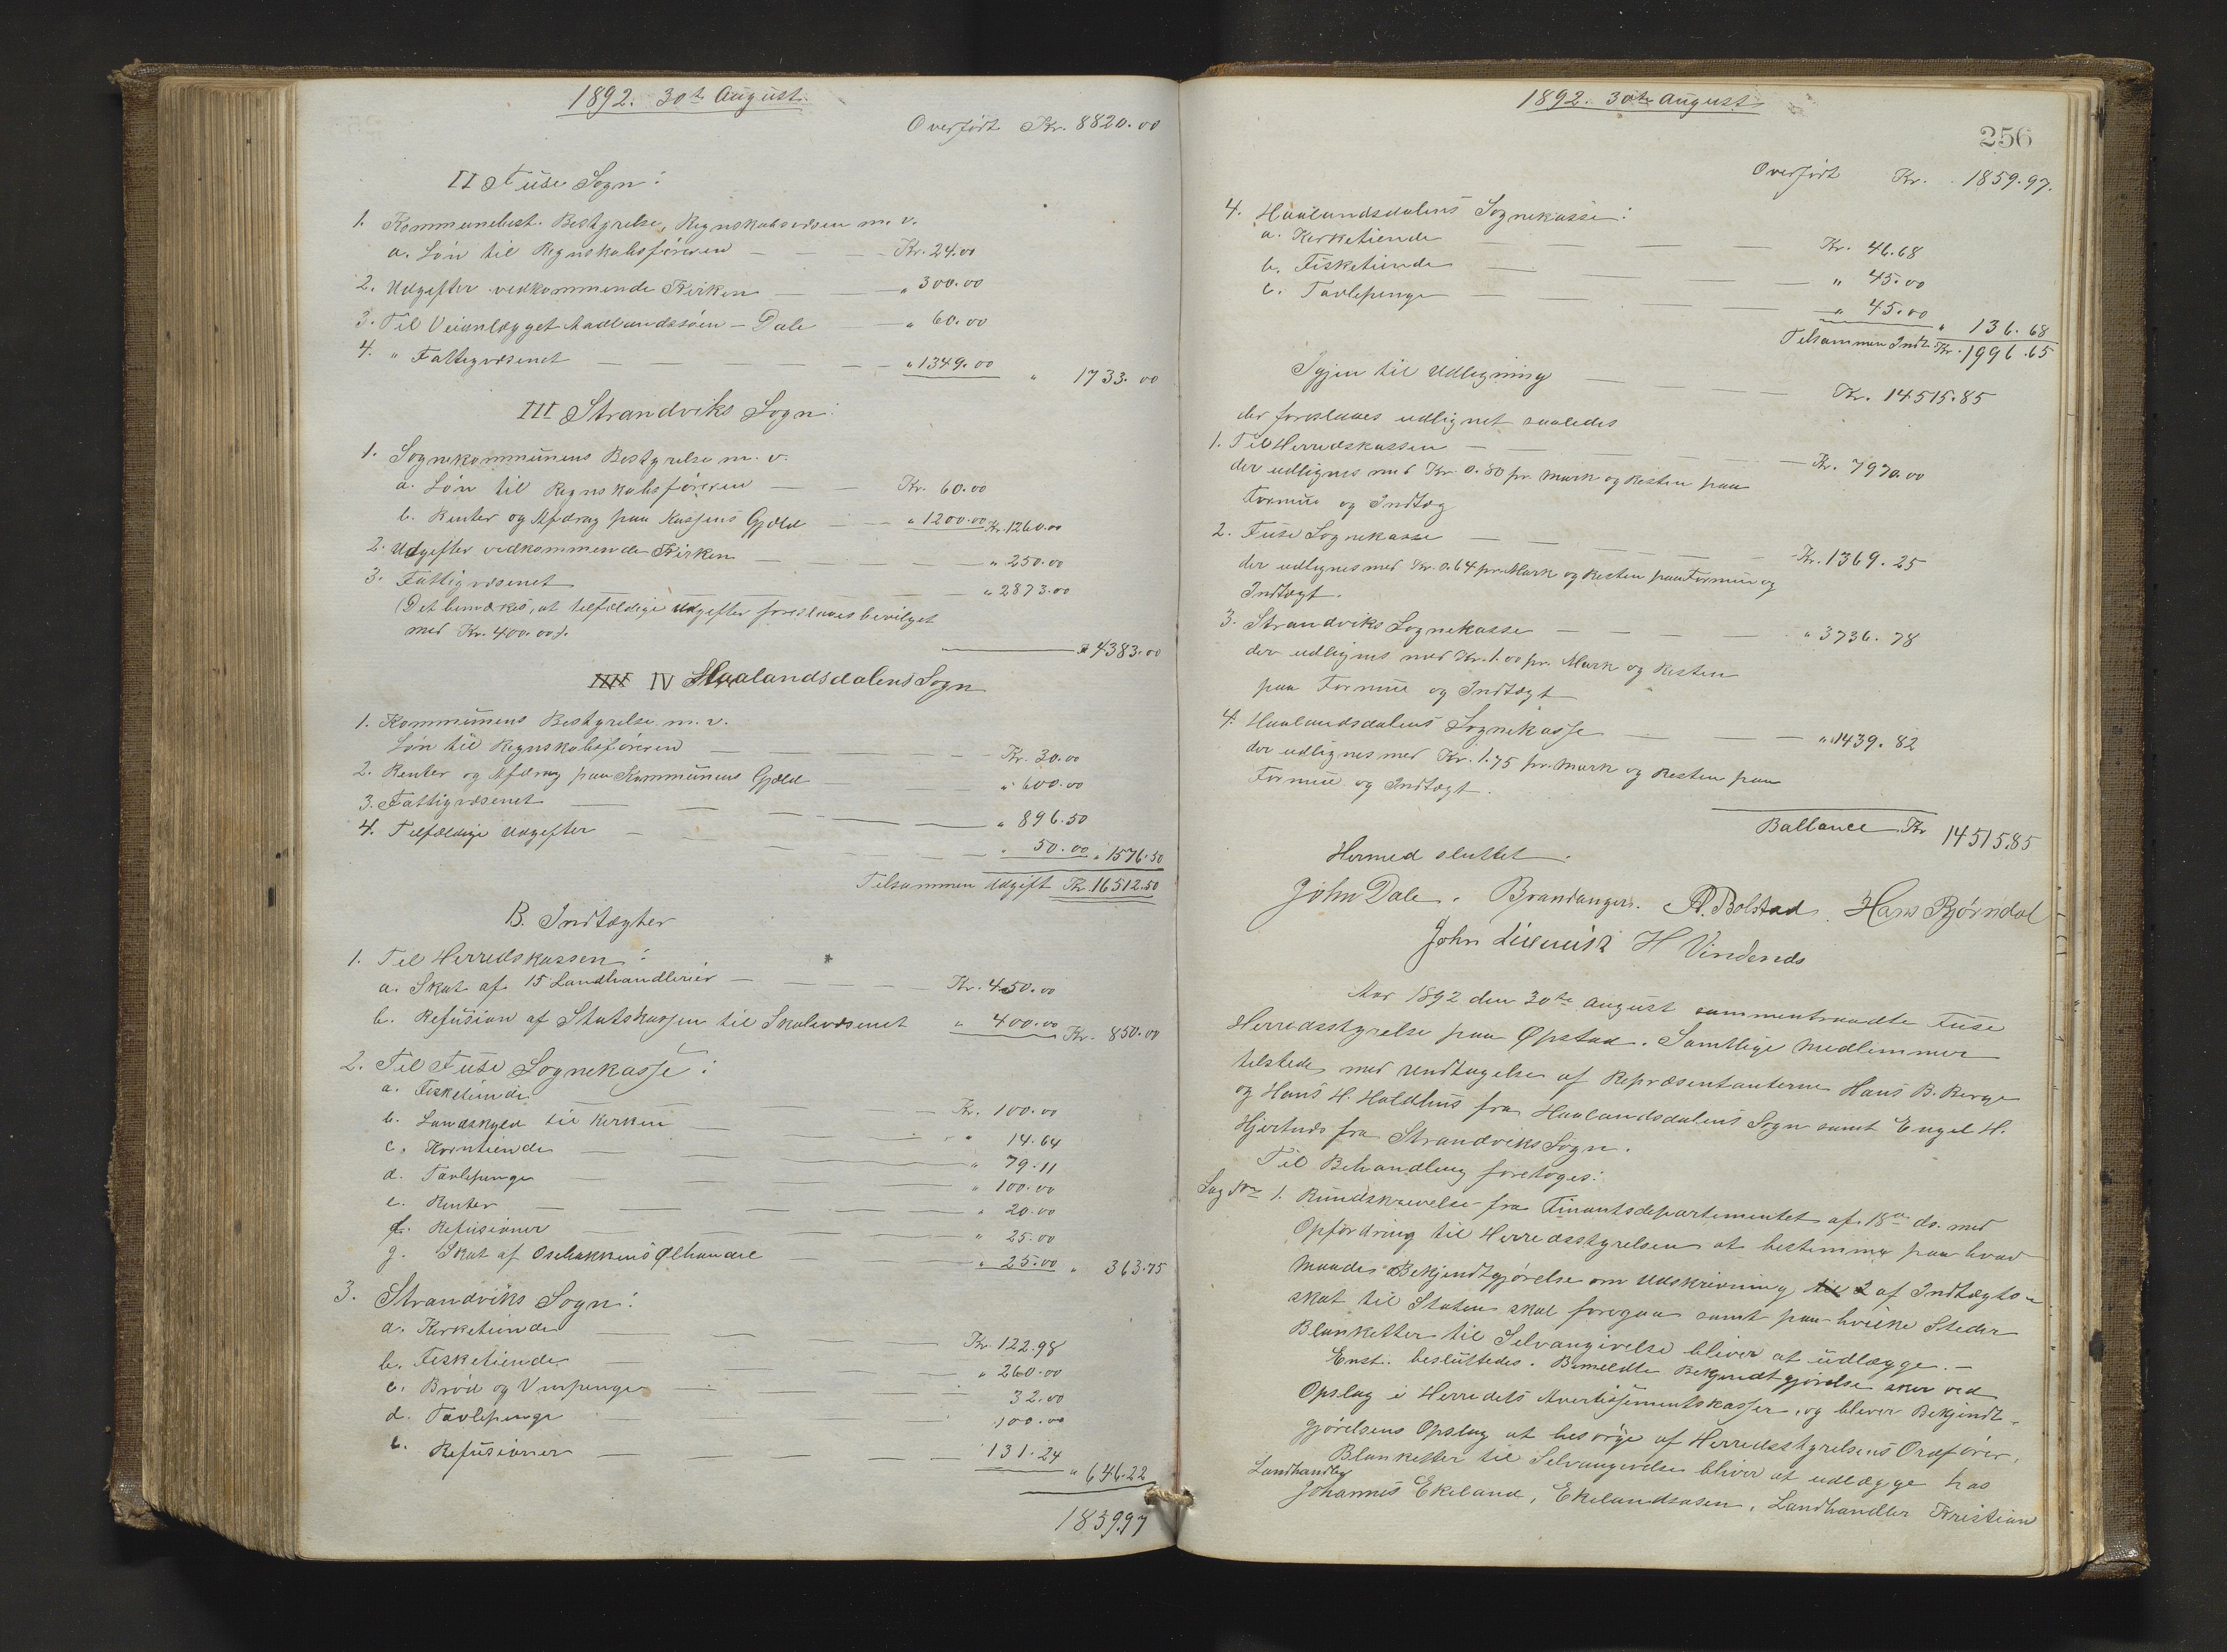 1892. 30te August.
Overført Kr. 8820.00
II Fuse Sogn:
1. Kommunebest. Bestyrelse, Regnskabsvæsen m. v.
a. Løn til Regnskabsføreren — — — Kr. 24.00
2. Udgifter vedkommende Kirken — — " 300.00
3. Til Veianlægget Aadlandssøen - Dale — " 60.00
4. " Fattigvæsenet — — — — " 1349.00 " 1733.00
III Strandviks Sogn:
1. Sognekommunens Bestyrelse m. v.
a. Løn til Regnskabsføreren — — Kr. 60.00
b. Renter og Afdrag paa Kassens Gjæld — — " 1200.00 Kr. 1260.00
2. Udgifter vedkommende Kirken — — — " 250.00
3. Fattigvæsenet — — — — " 2873.00
(Det bemærkes, at tilfældige Udgifter foreslaaes bevilget
med Kr. 400.00).
" 4383.00
IV Haalandsdalens Sogn
1. Kommunens Bestyrelse m. v.
Løn til Regnskabsføreren — — — Kr. 30.00
2. Renter og Afdrag paa Kommunens Gjæld — — " 600.00
3. Fattigvæsenet — — — — " 896.50
4. Tilfældige Udgifter — — — — " 50.00 " 1576.50
Tilsammen Udgift Kr. 16512.50
B. Indtægter
1. Til Herredskassen:
a. Skat af 15 Landhandlerier — — — Kr. 450.00
b. Refusion af Statskassen til Skolevæsenet " 400.00 Kr. 850.00
2. Til Fuse Sognekasse:
a. Fisketiende — — — Kr. 100.00
b. Landskyld til Kirken — — — " 14.64
c. Korntiende — — — " 79.11
d. Tavlepenge — — — " 100.00
e. Renter — — — — " 20.00
f. Refusioner — — — " 25.00
g. Skat af Osebakkens Ølhandel — — " 25.00 " 363.75
3. Strandviks Sogn:
a. Kirketiende — — — Kr. 122.98
b. Fisketiende — — — " 260.00
c. Brød og Vinpenge — — — 32.00
d. Tavlepenge — — — 100.00
e. Refusioner — — — — 131.24
" 646.22
1859.97
1892. 30te August.
256
Overført Kr. 1859.97.
4. Haalandsdalens Sognekasse:
a. Kirketiende — — — Kr. 46.68
b. Fisketiende — — — " 45.00
c. Tavlepenge — — — " 45.00 " 136.68
Tilsammen Indt. Kr. 1996.65
Igjen til Udligning — — — Kr. 14515.85
der foreslaaes udlignet saaledes
1. Til Herredskassen — — — — Kr. 7970.00
der udlignes med Kr. 0.80 pr. Mark og Resten paa
Formue og Indtæg
2. Fuse Sognekasse — — — — Kr. 1369.25
der udlignes med Kr. 0.64 pr. Mark og Resten paa Formue og
Indtægt.
3. Strandviks Sognekasse — — — — " 3736.78
der udlignes med Kr. 1.00 pr. Mark og Resten
paa Formue og Indtægt
4. Haalandsdalens Sognekasse — — — " 1439.82
der udlignes med Kr. 1.75 pr. Mark og Resten paa
Formue og Indtægt.
Ballance Kr 14515.85
Hermed sluttet.
John Dale. Brandanger. A. Bolstad. Hans Bjørndal
John H Vindenes
Aar 1892 den 30te August sammentraadte Fuse
Herredsstyrelse paa Øpstad. Samtlige Medlemmer
tilstede med undtagelse af Repræsentanterne Hans B. Berge
og Hans H. Holdhus fra Haalandsdalens Sogn samt Engel H.
Hjertnes fra Strandviks Sogn.
Til Behandling foretoges:
Sag No 1. Rundskrivelse fra Finantsdepartementet af 18de ds. med
Opfordring til Herredsstyrelsen at bestemme paa hvad
Maade Bekjendtgjørelse om Udskrivning af Indtægts-
skat til Staten skal foregaa samt paa hvilke Steder
Blanketter til Selvangivelse bliver at udlægge. —
Enst. besluttedes. Bemeldte Bekjendtgjørelse sker ved
Opslag i Herredets Avertissementskasser, og bliver Bekjendt-
gjørelsens Opslag at besørge af Herredsstyrelsens Ordfører.
Blanketter til Selvangivelse bliver at udlægge hos
Landhandler
Johannes Ekeland, Ekelandsosen, Landhandler Kristian